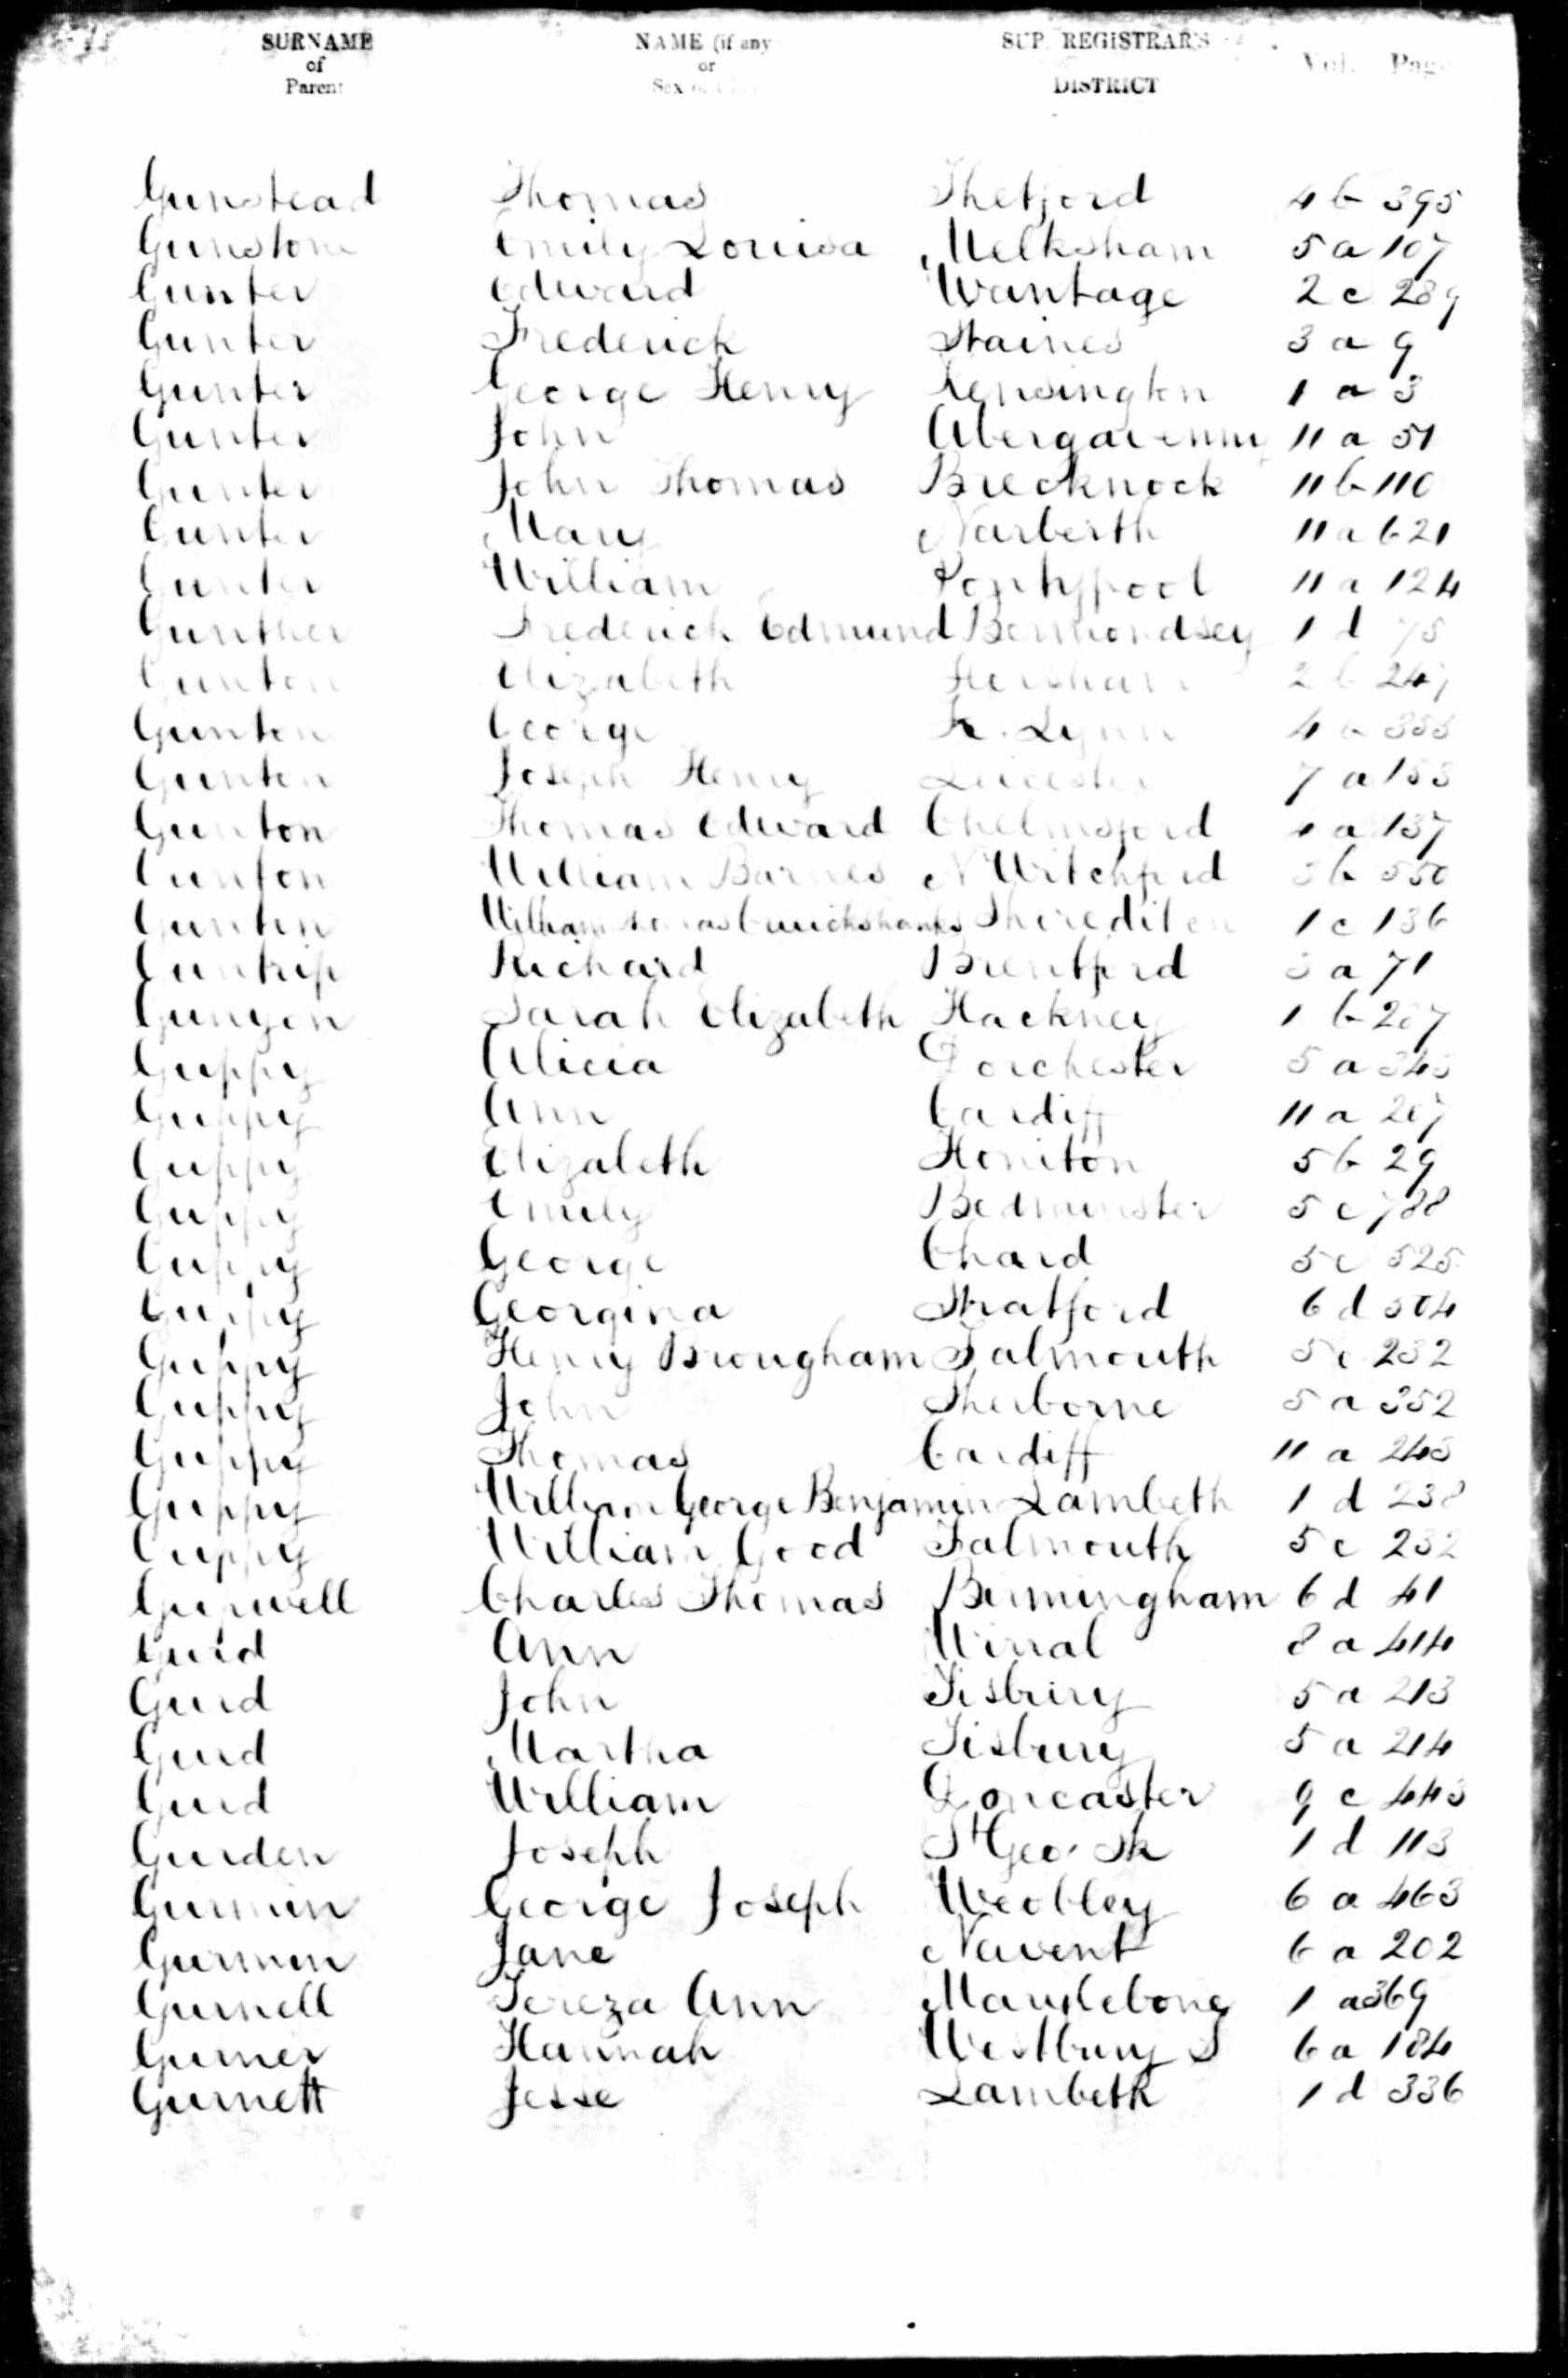 SURNAME of Parent NAME (if any or Sex SUP. REGISTRAR'S DISTRICT Vol. Page
Gunstead Thomas Thetford 4 b 395
Gunstone Emily Louisa Melksham 5 a 107
Gunter Edward Wantage 2 c 289
Gunter Frederick Staines 3 a 9
Gunter George Henry Kensington 1 a 3
Gunter John Abergavenny 11 a 51
Gunter John Thomas Brecknock 11 b 110
Gunter Mary Narberth 11 a 621
Gunter William Pontypool 11 a 124
Gunther Frederick Edmund Bermondsey 1 d 75
Gunton Elizabeth 2 b
Gunton George K. Lynn 4 b
Gunton Joseph Henry Leicester 7 a
Gunton Thomas Edward Chelmsford 4 a 137
Gunton William Barnes N Witchford 3 b 550
Gunton William Thomas Cruickshanks Shoreditch 1 c 136
Guntrip Richard Brentford 3 a 71
Gunyon Sarah Elizabeth Hackney 1 b
Guppy Alicia Dorchester 5 a 343
Guppy Ann Cardiff 11 a
Guppy Elizabeth Honiton 5 b 29
Guppy Emily Bedminster 5 c 788
Guppy George Chard 5 c 525
Guppy Georgina Stratford 6 d 504
Guppy Henry Brougham Falmouth 5 c 232
Guppy John Sherborne 5 a 352
Guppy Thomas Cardiff 11 a 243
Guppy William George Benjamin Lambeth 1 d 238
Guppy William Good Falmouth 5 c 232
Gupwell Charles Thomas Birmingham 6 d 41
Gurd Ann Wirral 8 a 414
Gurd John Tisbury 5 a 213
Gurd Martha Tisbury 5 a 214
Gurd William Doncaster 9 c 443
Gurden Joseph St Geo. Sk 1 d 113
Gurmin George Joseph Weobley 6 a 463
Gurmin Jane Newent 6 a 202
Gurnell Tereza Ann Marylebone 1 a 369
Gurner Hannah Westbury S 6 a 184
Gurnett Jesse Lambeth 1 d 336